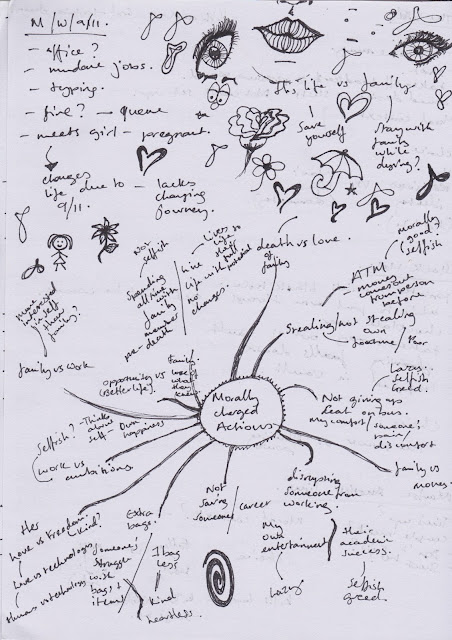 M/W/9/11.
- office?
- mundane jobs.
- typing.
- fire? - queue
- meets girl - pregnant.
changes
life due to - lacks
9/11. changing
journey.
this life vs family.
Save
yourself
Stay with
family
while
dying?
Not
selfish
Spending
all time
with
family
member
pre-death
Live
life with
no
change.
Lives to
life
their full
potential
death vs love.
of
family
morally
good?
(selfish
ATM
money
from person
before
Stealing/not stealing
own
/ Poor
most
interested
in self
then
family?
family vs work
opportunity vs
(Better life).
Family.
what
they
know
Morally
charged
Actions
Lazy.
Selfish
Greed.
Not giving up
seat on bus.
my comfort / someone's
pain/
discomfort
family vs
moves.
Selfish? - Think
about
self - Own
happiness
work vs
ambitions.
Her
love vs freedom.
kind?
Love vs technology
Human vs technology
Extra
bags.
Someone's
struggle
with
bags +
items
1 bag
less
kind
heartless.
Not
saving
someone / career
disrupting
someone from
working.
My
own
entertainment
their
academic
success.
Lazy
Selfish
greed.